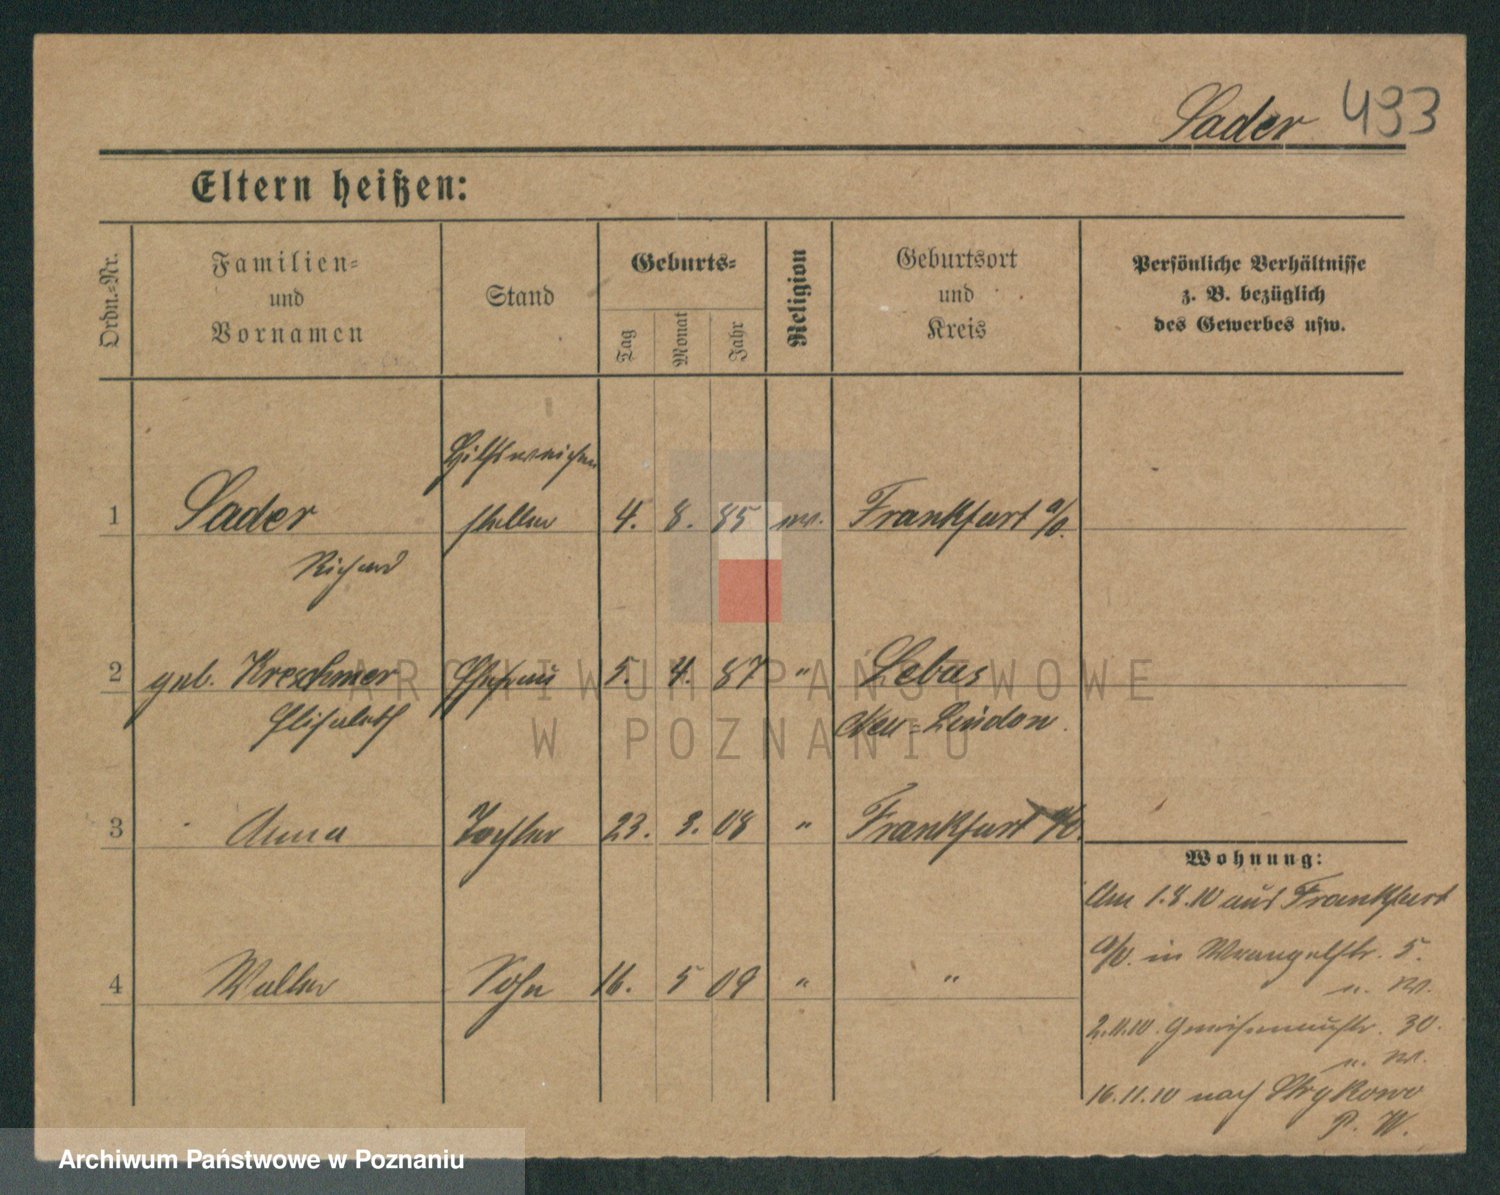 Sader 493
Eltern heißen:
Ordn.-Nr.
Familien-
und
Vornamen
Stand
Geburts-
Tag
Monat
Jahr
Religion
Geburtsort
und
Kreis
Persönliche Verhältnisse
z. B. bezüglich
des Gewerbes usw.
Hilfsweichen
1 Sader steller 4. 8. 85 ev. Frankfurt a/O.
Richard
2 geb. Kreschmer Ehefrau 5. 4. 87 " Lebus
Elisabeth Neu-Lindow.
3 Anna Tochter 23. 3. 08 " Frankfurt a/O.
4 Walter Sohn 16. 5 09 " "
Wohnung:
Am 1.8.10 aus Frankfurt
a/O. in Wrangelstr. 5.
2.11.10. Gneisenaustr. 30.
16.11.10 nach Strykowo
P. W.
ARCHIWUM PAŃSTWOWE
W POZNANIU
Archiwum Państwowe w Poznaniu